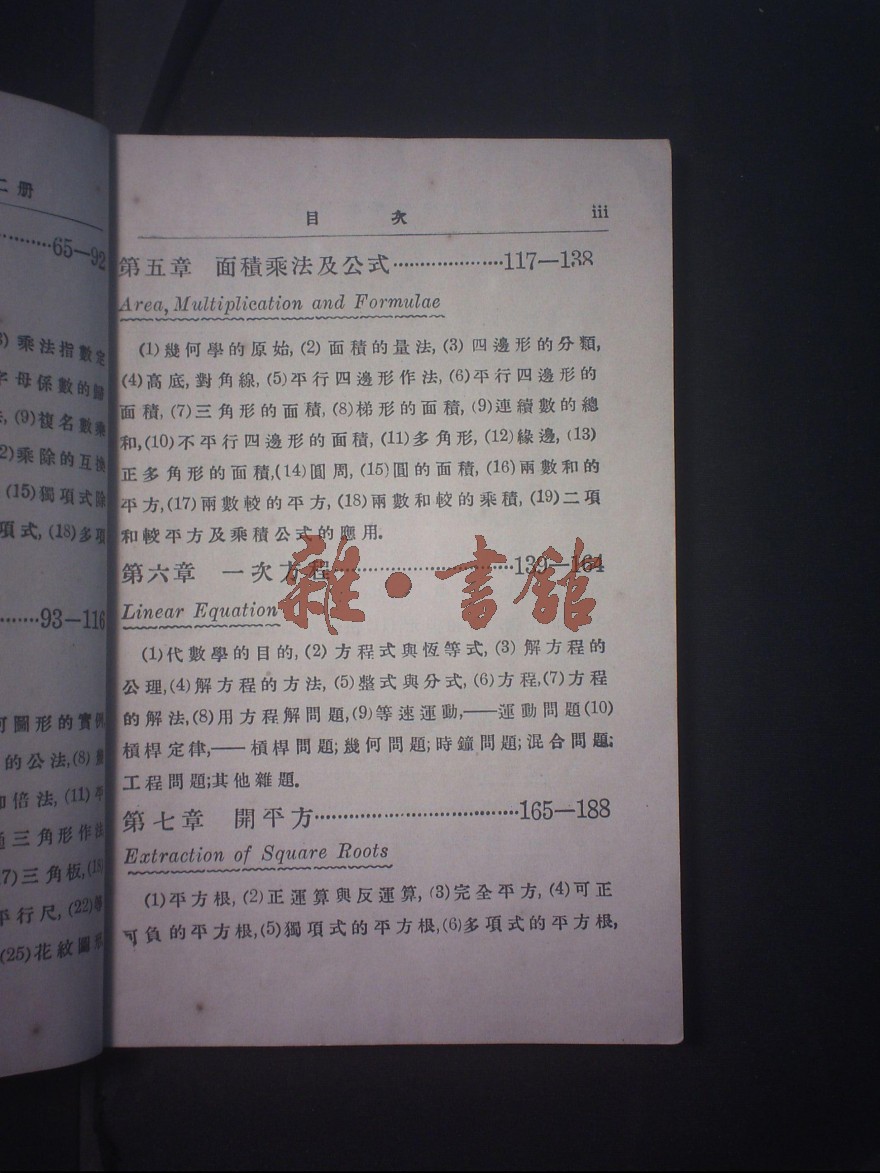 二册
65—92
乘法指數定
字母係數的歸
(9)複名數乘
2)乘除的互換
(15)獨項式除
項式, (18)多項
93—116
可圖形的實例
的公法,(8)
加倍法, (11)平
三角形作法
7)三角板,(18)
平行尺, (22)
(25)花紋圖形
目 次 iii
第五章 面積乘法及公式 117—138
Area, Multiplication and Formulae
(1)幾何學的原始, (2) 面積的量法, (3) 四邊形的分類,
(4)高底, 對角線, (5)平行四邊形作法, (6)平行四邊形的
面積, (7)三角形的面積, (8)梯形的面積, (9)連續數的總
和,(10)不平行四邊形的面積, (11)多角形, (12)緣邊, (13)
正多角形的面積,(14)圓周, (15)圓的面積, (16)兩數和的
平方,(17)兩數較的平方, (18)兩數和較的乘積, (19)二項
和較平方及乘積公式的應用.
第六章 一次方程 139—164
Linear Equation
雜·書館
(1)代數學的目的, (2) 方程式與恆等式, (3) 解方程的
公理,(4)解方程的方法, (5)整式與分式, (6)方程,(7)方程
的解法,(8)用方程解問題,(9)等速運動,——運動問題(10)
槓桿定律,——槓桿問題;幾何問題;時鐘問題;混合問題;
工程問題;其他雜題.
第七章 開平方 165—188
Extraction of Square Roots
(1)平方根, (2)正運算與反運算, (3)完全平方, (4)可正
可負的平方根,(5)獨項式的平方根,(6)多項式的平方根,